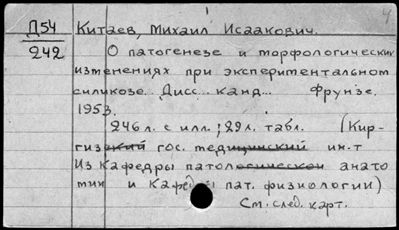 4
Д54 Китаев, Михаил Исаакович.
242 О патогенезе и морфологических
изменениях при экспериментальном
силикозе. Дисс... канд... Фрунзе,
1953.
246 л. с илл.; 29 л. табл. (Кир-
гизский гос. медицинский ин-т
Из кафедры патологической анато
мии и Кафедры пат. физиологии)
См. след. карт.